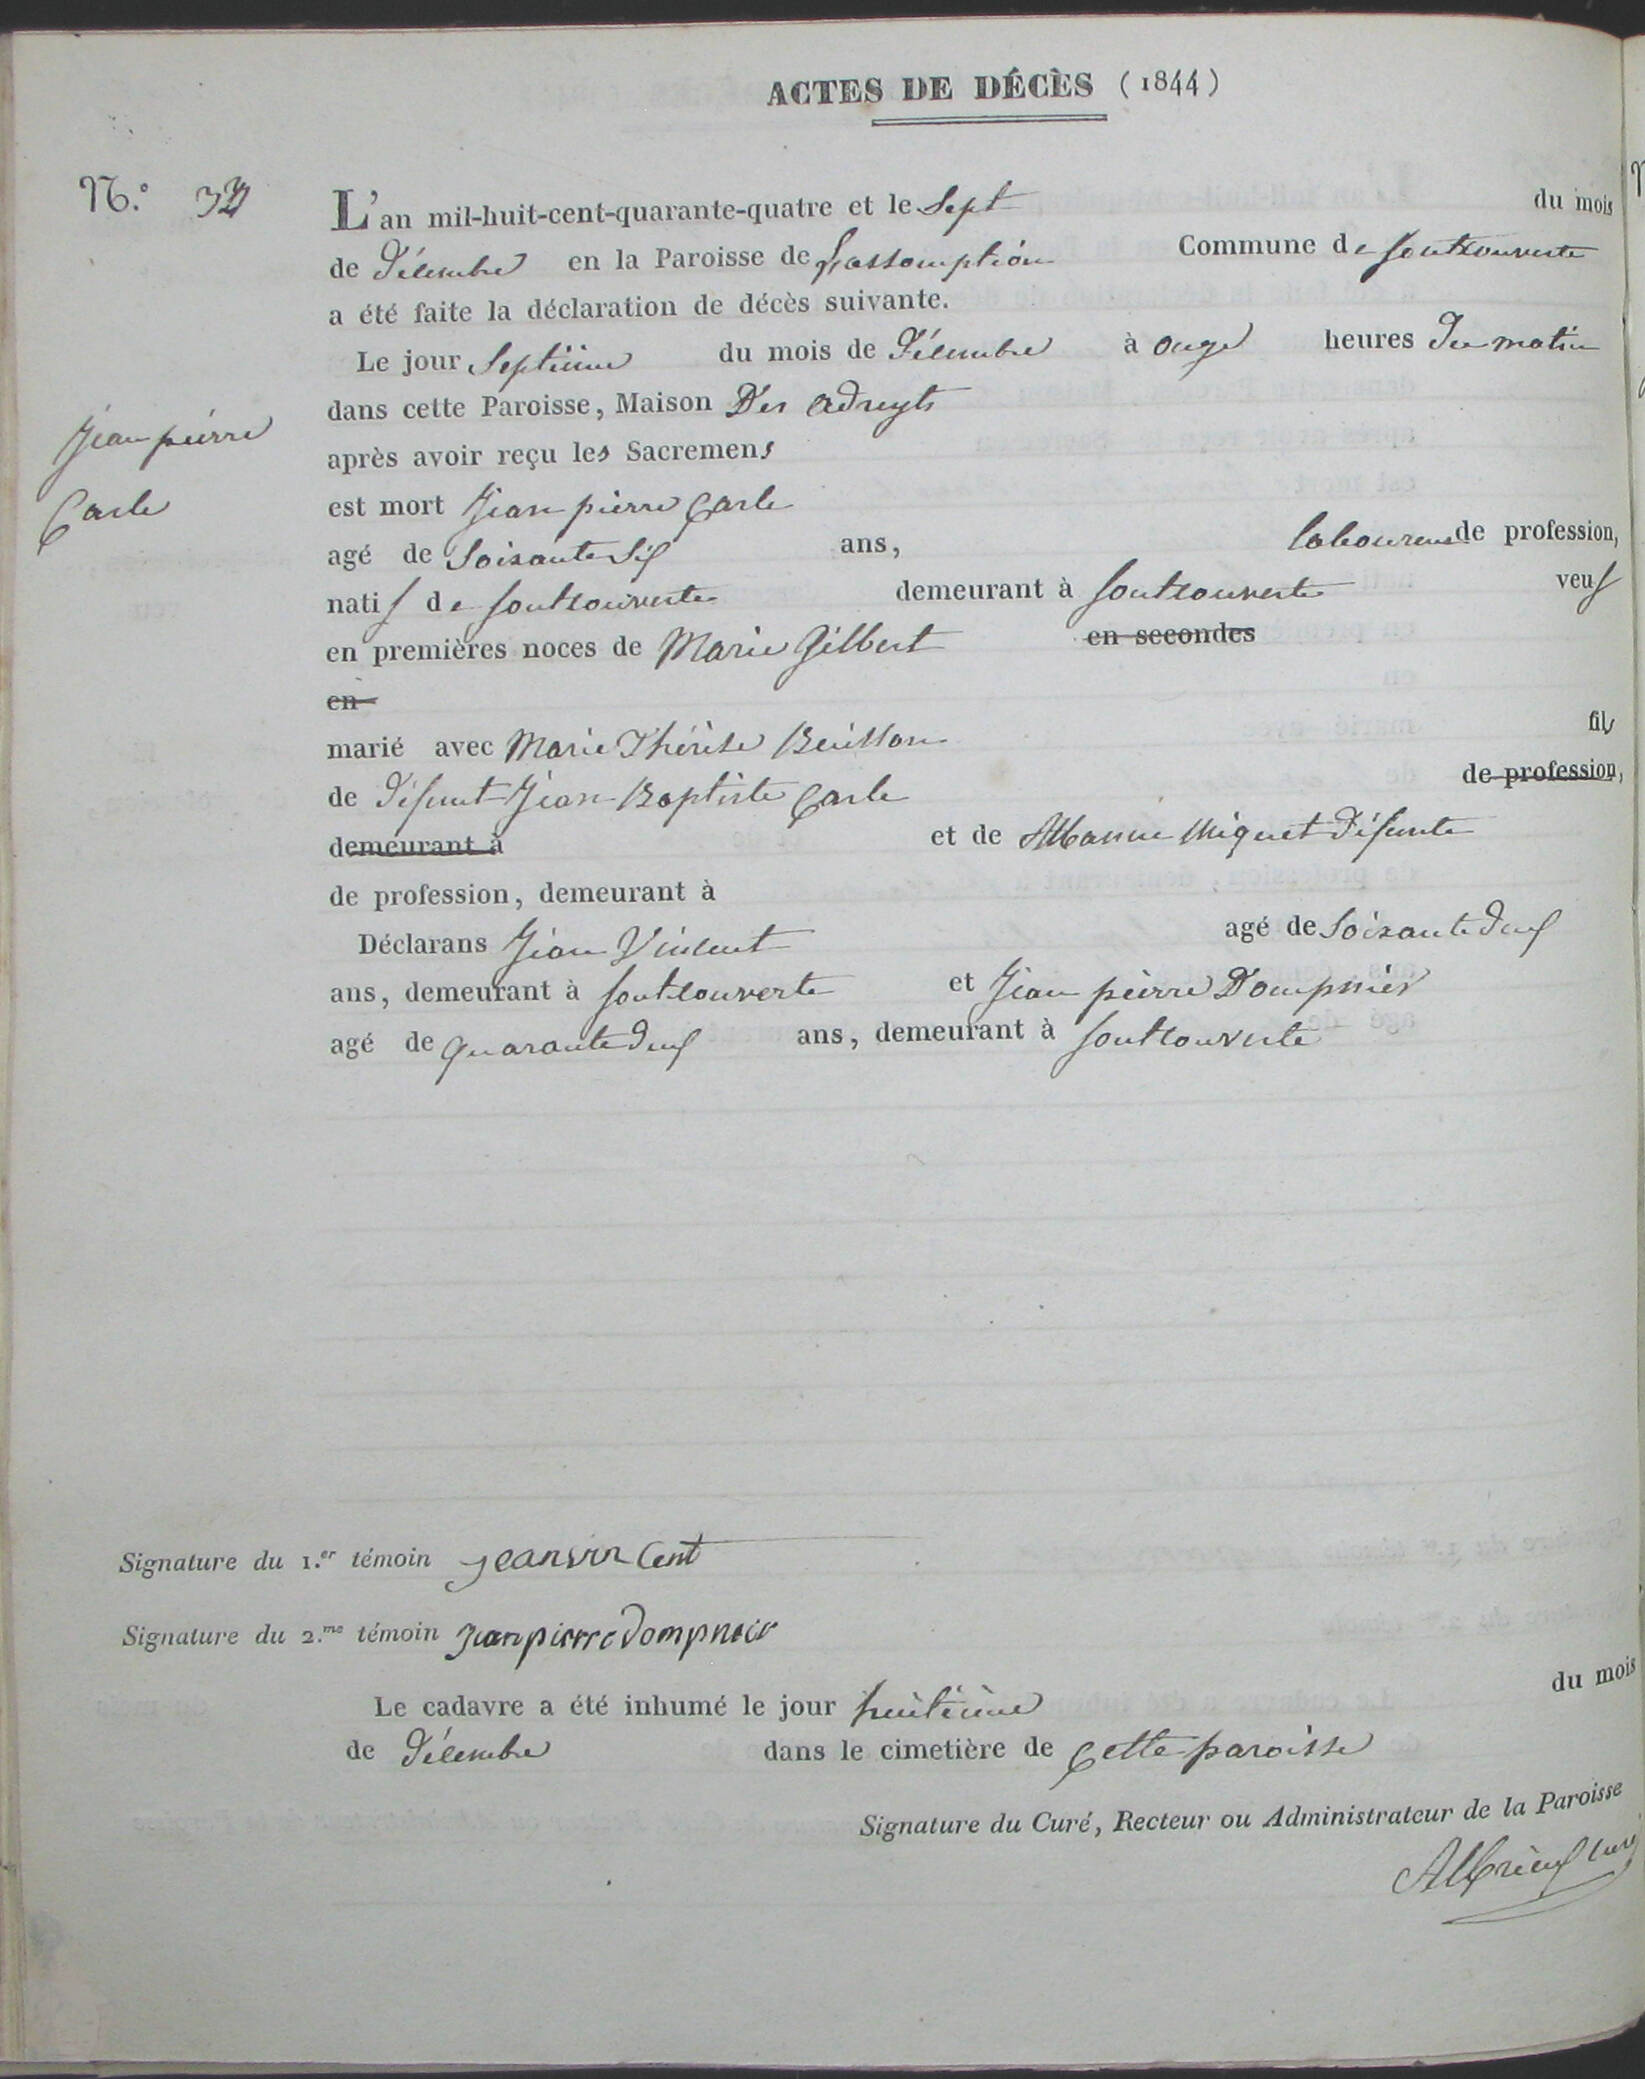 ACTES DE DÉCÈS (1844)
N.º
L'an mil-huit-cent-quarante-quatre et le Sept du mois
de Décembre en la Paroisse de L'assomption Commune de fontcouverte
a été faite la déclaration de décès suivante.
Le jour Septième du mois de Décembre à onze heures Du matin
dans cette Paroisse, Maison Des Adreyts
après avoir reçu les Sacremens
Jean pierre
Carle
est mort Jean pierre Carle
agé de Soixante Six ans, laboureur de profession,
natif de fontcouverte demeurant à fontcouverte veuf
en premières noces de Marie Gilbert en secondes
en
marié avec Marie Thérèse Buisson fils
de Défunt Jean Baptiste Carle de profession,
demeurant à et de Miquet Défunte
de profession, demeurant à
Déclarans Jean Vincent agé de Soixante Deux
ans, demeurant à fontcouverte et Jean pierre Dompnier
agé de quarante Deux ans, demeurant à fontcouverte
Signature du 1.er témoin jeanvincent
Signature du 2.me témoin jean pierre Dompnier
Le cadavre a été inhumé le jour huitième du mois
de Décembre dans le cimetière de Cette paroisse
Signature du Curé, Recteur ou Administrateur de la Paroisse
curé